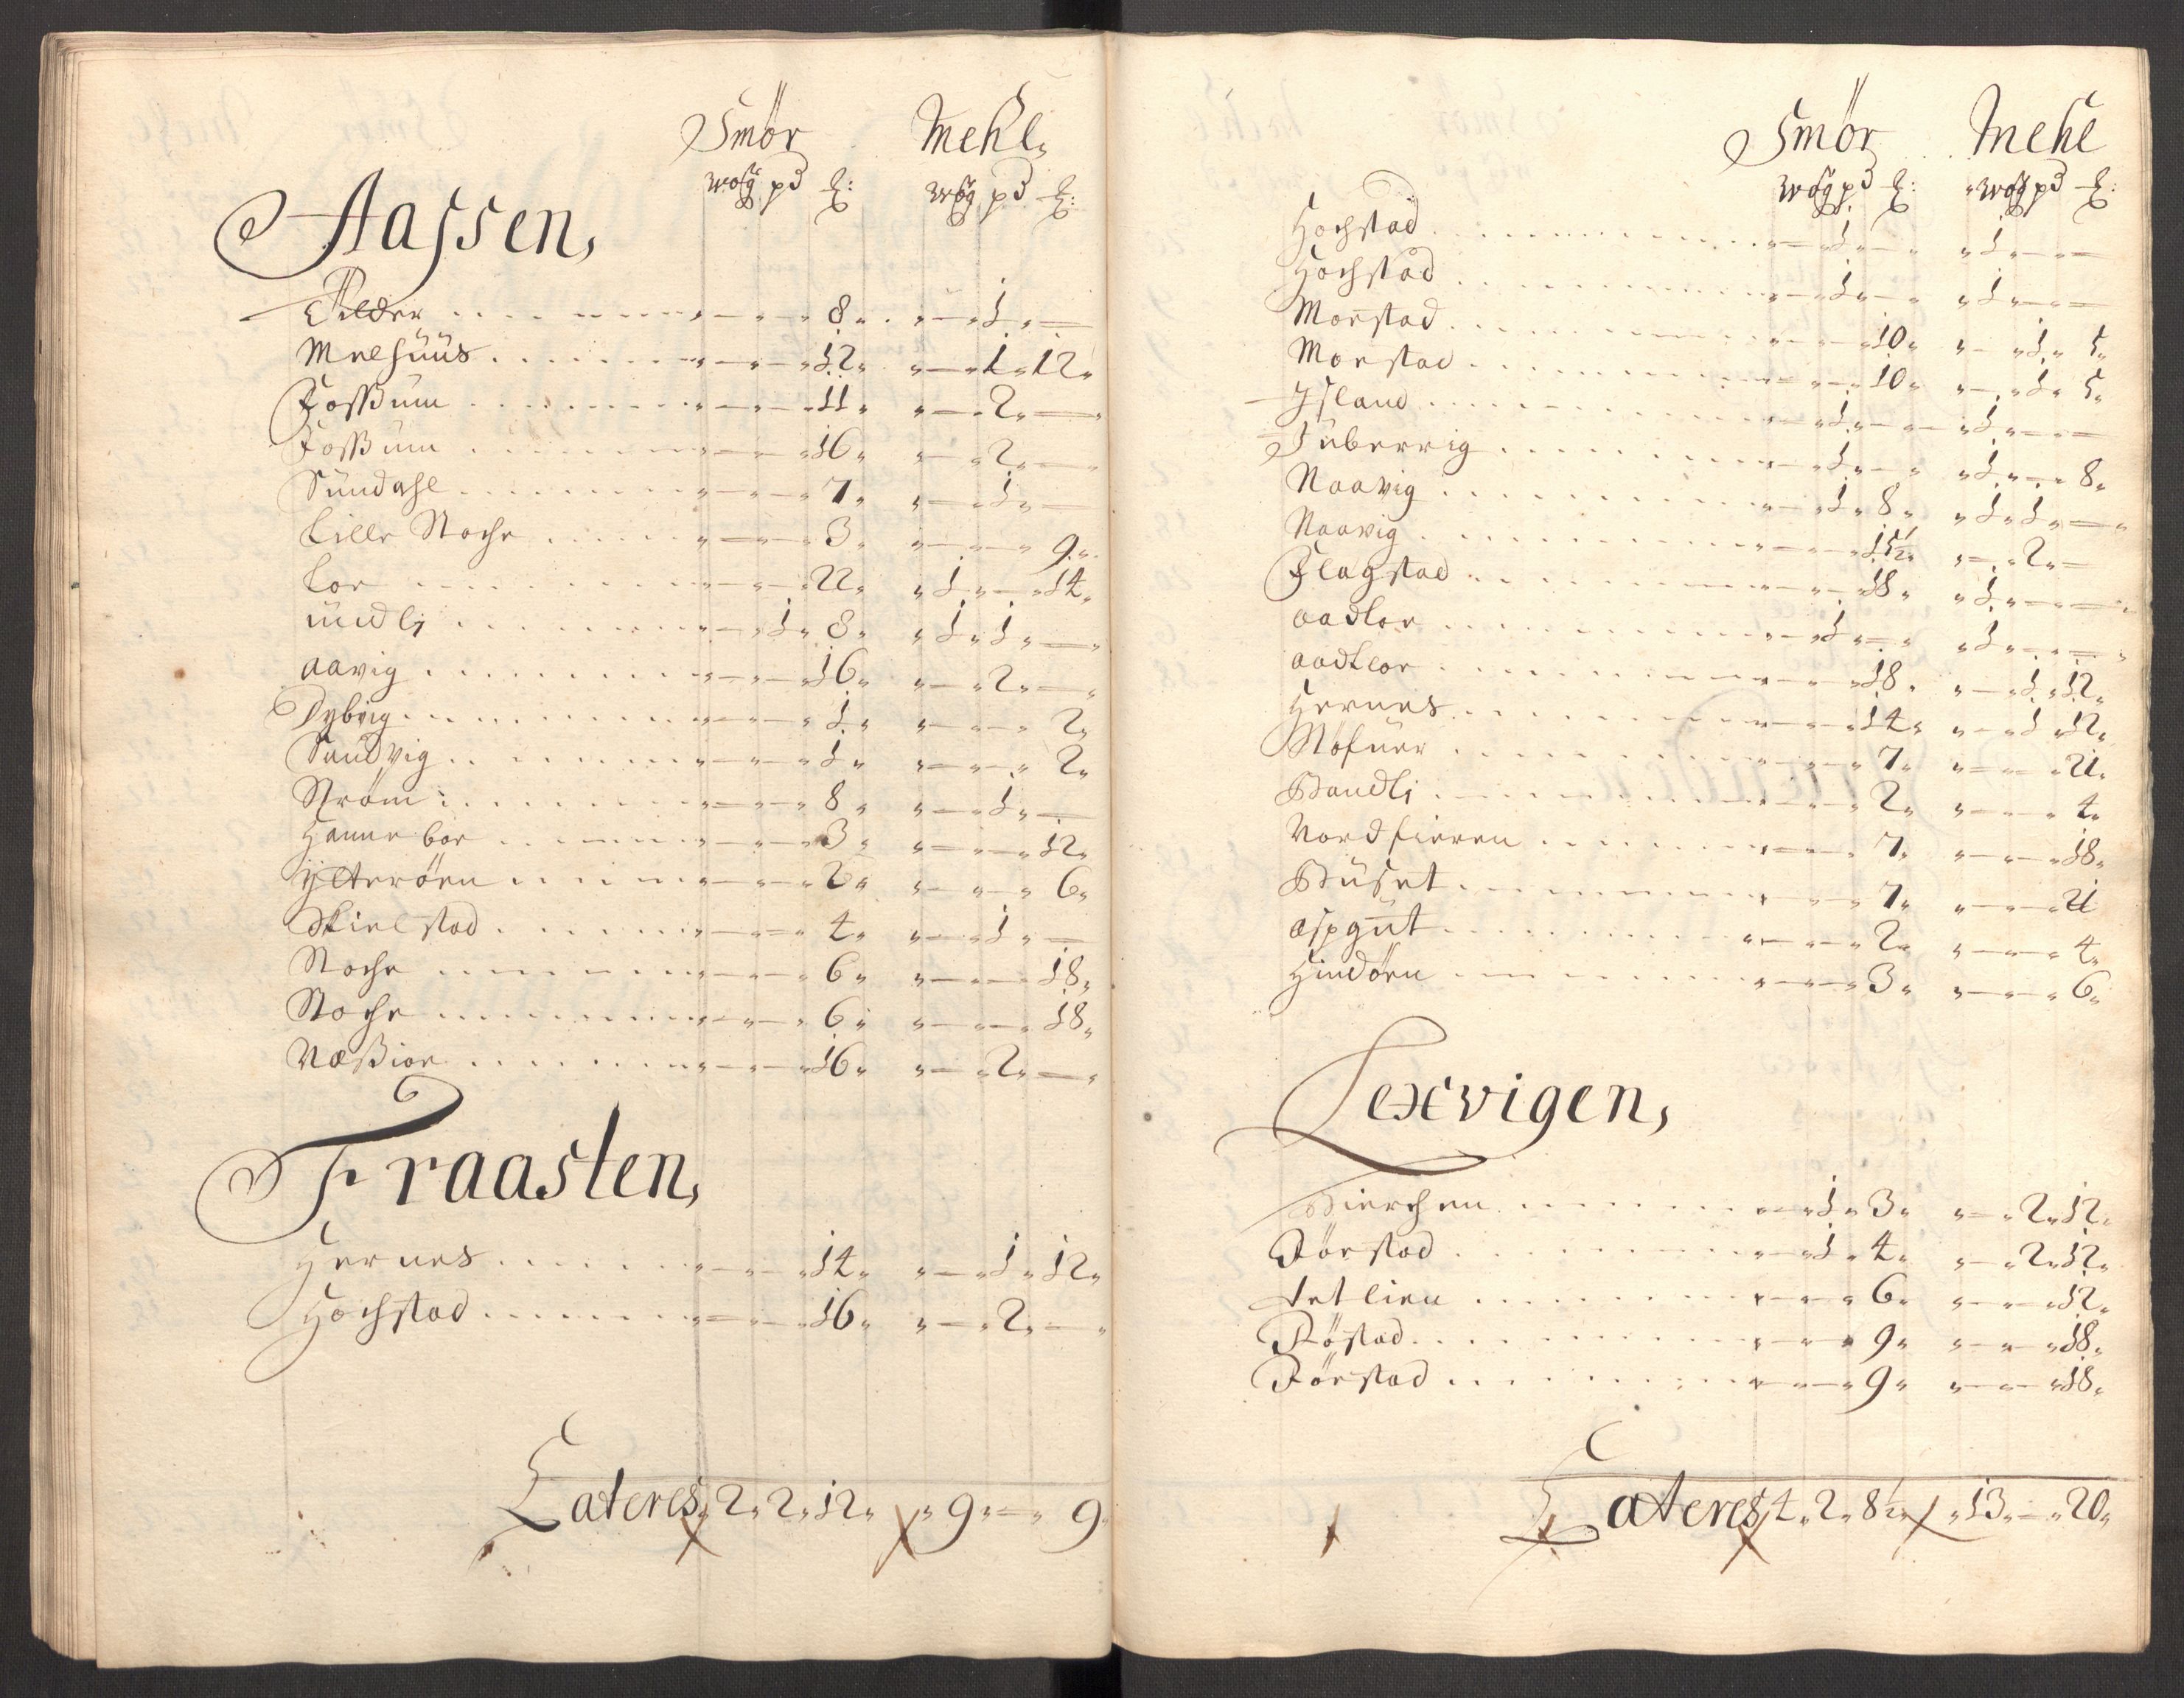 Smör Mehl,
wog pd ℔: wog pd ℔:
Aassen,
Vÿlder . . . „ — „ — „ 8 „ „ — „ 1 „ —
Melhüüs . . . „ — „ — „ 12 „ „ — „ 1 „ 12 „
Fossum . . . „ — „ — „ 11 „ „ — „ 2 „ —
Fossum . . . „ — „ — „ 16 „ „ — „ 2 „ —
Sündahl . . . „ — „ — „ 7 „ „ — „ 1 „ —
Lille Stoche . . . „ — „ — „ 3 „ „ — „ — „ 9 „
Lor . . . „ — „ — „ 22 „ „ 1 „ — „ 14 „
undli . . . „ — „ 1 „ 8 „ „ 1 „ 1 „ —
aavig . . . „ — „ — „ 16 „ „ — „ 2 „ —
Dybvig . . . „ — „ — „ 1 „ „ — „ — „ 2 „
Sandvig . . . „ — „ — „ 1 „ „ — „ — „ 2 „
Strøm . . . „ — „ — „ 8 „ „ — „ 1 „ —
Hannebor . . . „ — „ — „ 3 „ „ — „ — „ 12 „
ÿtterøen . . . „ — „ — „ 2 „ „ — „ — „ 6 „
Skielstad . . . „ — „ — „ 4 „ „ — „ 1 „ —
Stoche . . . „ — „ — „ 6 „ „ — „ — „ 18 „
Stoche . . . „ — „ — „ 6 „ „ — „ — „ 18 „
Næssior . . . „ — „ — „ 16 „ „ — „ 2 „ —
Fraasten,
Hernes . . . „ — „ — „ 14 „ „ — „ 1 „ 12 „
Hochstad . . . „ — „ — „ 16 „ „ — „ 2 „ —
Lateres „ 2 „ 2 „ 12 „ „ 9 „ — „ 9
Smör Mehl
wog pd ℔: wog pd ℔:
Hochstad . . . „ — „ 1 „ — „ „ 1 „ — „ —
Hochstad . . . „ — „ 1 „ — „ „ 1 „ — „ —
Monstad . . . „ — „ — „ 10 „ „ — „ 1 „ 5 „
Monstad . . . „ — „ — „ 10 „ „ — „ 1 „ 5 „
Island . . . „ — „ 1 „ — „ „ 1 „ — „ —
Tuberrig . . . „ — „ 1 „ — „ „ 1 „ — „ 8 „
Naavig . . . „ — „ 1 „ 8 „ „ 1 „ 1 „ —
Naavig . . . „ — „ — „ 15½ „ „ — „ 2 „ —
Flagstad . . . „ — „ — „ 18 „ „ 1 „ — „ —
aadlor . . . „ — „ 1 „ — „ „ 1 „ — „ —
aadlor . . . „ — „ — „ 18 „ „ — „ 1 „ 12 „
Hernes . . . „ — „ — „ 14 „ „ — „ 1 „ 12 „
Møfner . . . „ — „ — „ 7 „ „ — „ — „ 21 „
Bandli . . . „ — „ — „ 2 „ „ — „ — „ 4 „
Nordfieren . . . „ — „ — „ 7 „ „ — „ — „ 18 „
Buset . . . „ — „ — „ 7 „ „ — „ — „ 21
aspgut . . . „ — „ — „ 2 „ „ — „ — „ 4 „
Hindøen . . . „ — „ — „ 3 „ „ — „ — „ 6 „
Lexvigen,
Bierchen . . . „ — „ 1 „ 3 „ „ — „ 2 „ 12 „
Rörstad . . . „ — „ 1 „ 4 „ „ — „ 2 „ 12 „
tetlien . . . „ — „ — „ 6 „ „ — „ — „ 12 „
Röstad . . . „ — „ — „ 9 „ „ — „ — „ 18 „
Rörstad . . . „ — „ — „ 9 „ „ — „ — „ 18 „
Lateres 4 „ 2 „ 8½ „ „ 13 „ — „ 20 „